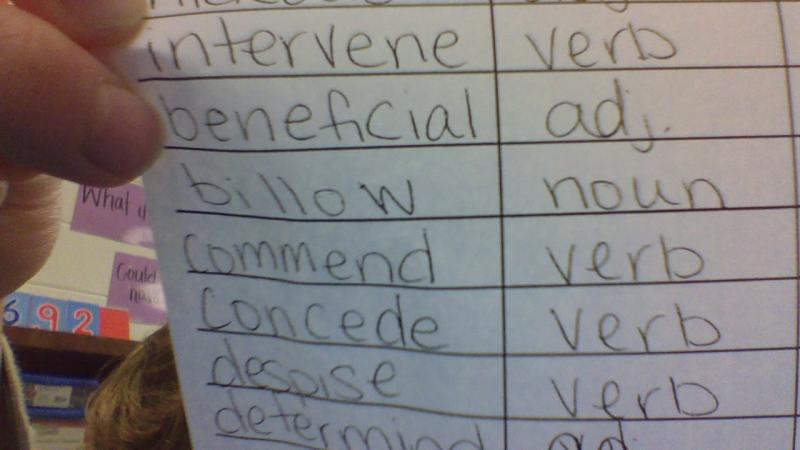 intervene verb
beneficial adj.
billow noun
commend verb
concede verb
despise verb
determined
What if
Could
6 9 2